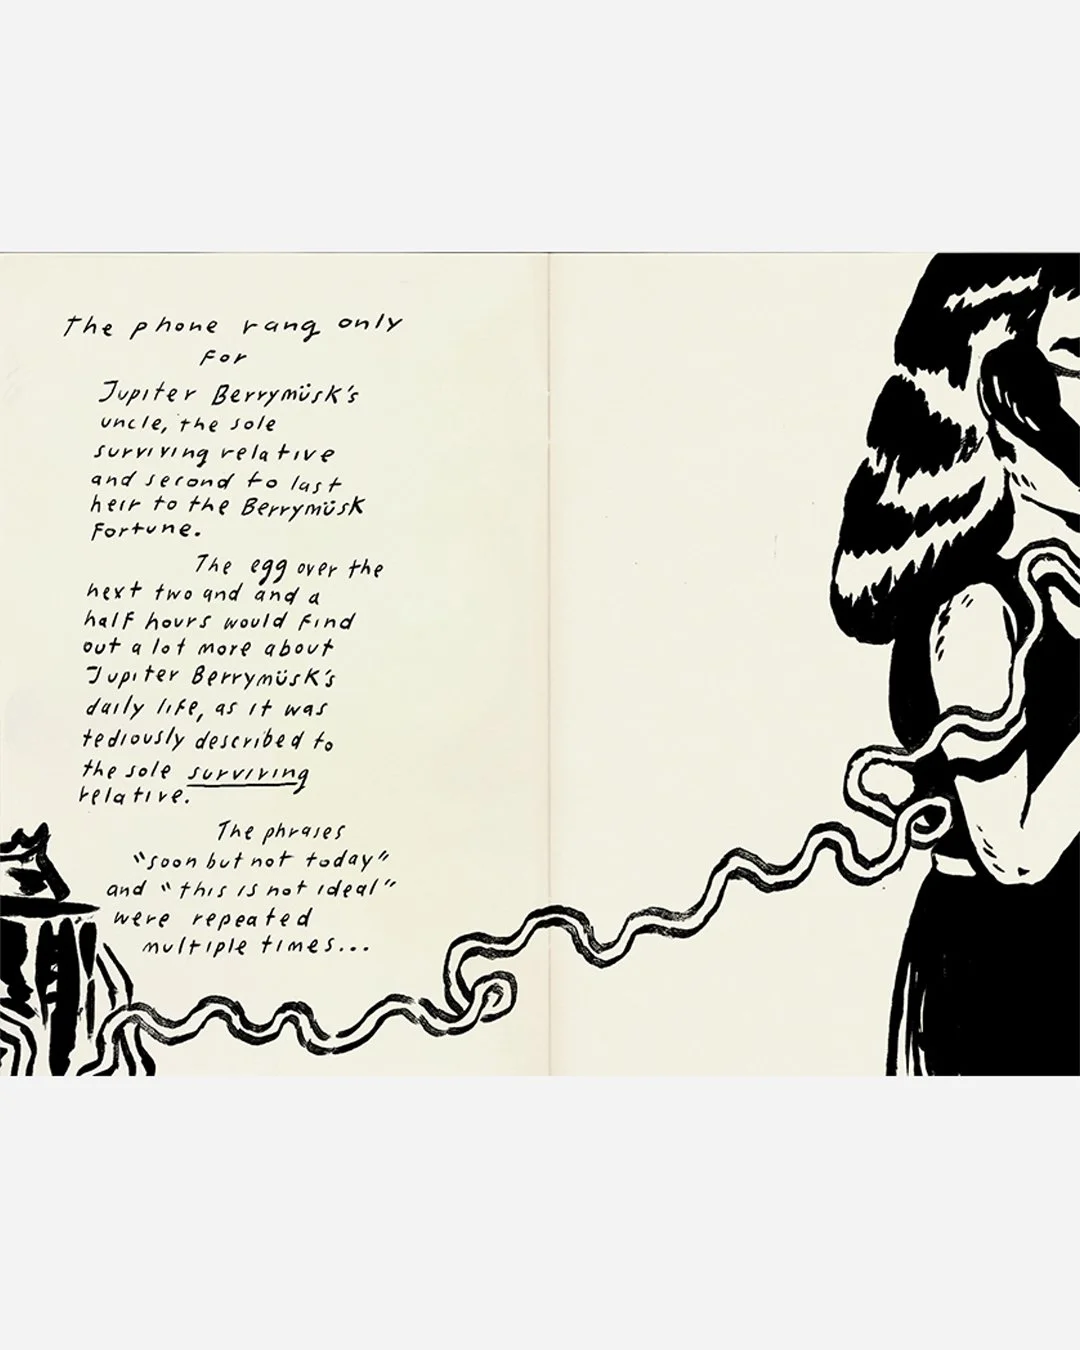 The phone rang only
for
Jupiter Berrymüsk's
uncle, the sole
surviving relative
and second to last
heir to the Berrymüsk
Fortune.
The egg over the
next two and and a
half hours would find
out a lot more about
Jupiter Berrymüsk's
daily life, as it was
tediously described to
the sole surviving
relative.
The phrases
"soon but not today"
and "this is not ideal"
were repeated
multiple times...